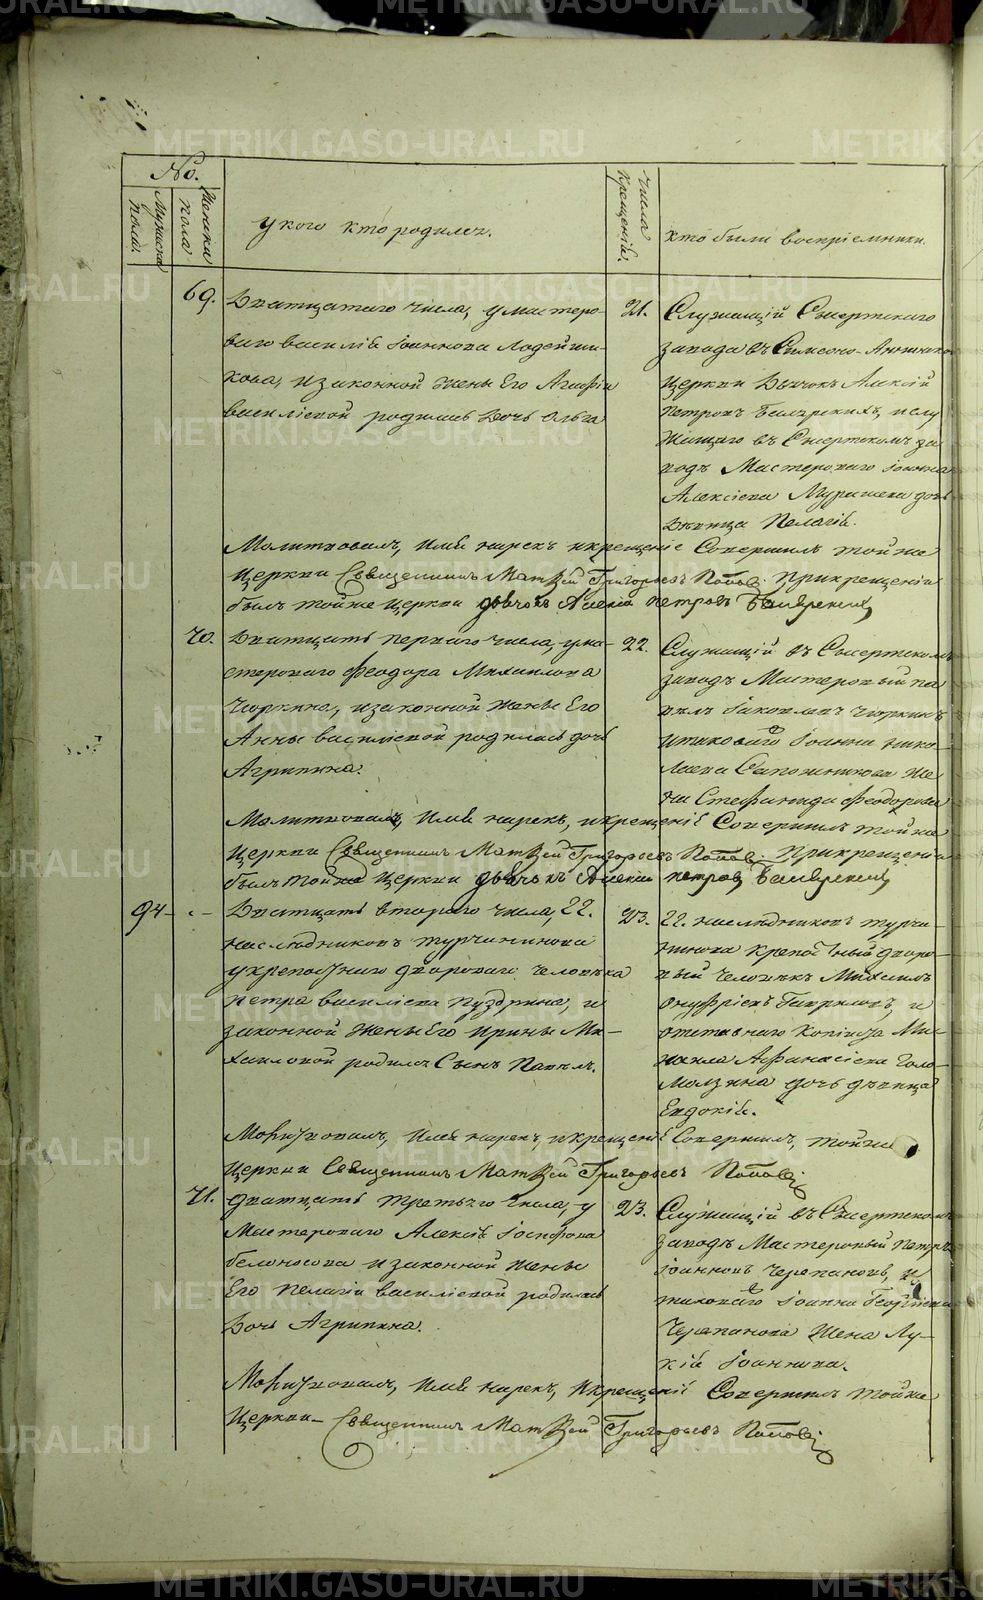 No.
Мужеска пола.
Женска пола
у кого кто родился.
числа крещеній.
кто были воспріемники.
69.
Дватцатаго числа, у мастеро-
ваго василія Іоаннова Лодейщи-
кова, и законной жены Его Агафіи
василіевой родилась Дочь Ольга
21.
Служащій Сысертскаго
завода въ Симеоно-Аннинской
Церкви Дьячокъ Алексій
Петровъ Белярскихъ, и слу
жащаго въ Сысертскомъ за
водѣ Мастероваго Іоанна
Алексіева дочь
Дѣвица Пелагія.
Молитвовалъ, Имя нарекъ и крещеніе Совершилъ тойже
Церкви Священникъ Матвей Григорьевъ Поповъ. При крещеніи
былъ тойже Церкви дьячокъ Алексій петровъ Белярскихъ
70.
Дватцать перваго числа, у ма-
стероваго Феодора Михаилова
Чюркина, и законной жены Его
Анны василіевой родилась дочь
Агрипина.
22.
Служащій въ Сысертскомъ
заводѣ Мастеровый па
велъ Іаковлевъ Чюркинъ
и таковаго Іоанна Нико
лаева Сапожникова же
на Стефанида Феодорова
Молитвовалъ, Имя нарекъ, и крещеніе Совершилъ тойже
Церкви Священникъ Матвей Григорьевъ Поповъ. При крещеніи
былъ тойже Церкви дьячокъ Алексій петровъ Белярскихъ
94
Дватцать втораго числа, 22.
наслѣдниковъ турчанинова
у крепостнаго двороваго человѣка
петра василіева Пуздрина, и
законной жены Его Ирины Ми-
хаиловой родился Сынъ Павелъ.
23.
22. наслѣдниковъ турча-
нинова крепостный дворо-
вый человѣкъ Михаилъ
Онуфріевъ Гавриловъ, и
отставнаго Копіиста Ми-
хаила Афанасіева Голо-
молзина дочь дѣвица
Евдокія.
Молитвовалъ, Имя нарекъ, и крещеніе Совершилъ, тойже
Церкви Священникъ Матвей Григорьевъ Поповъ
71.
дватцать третьяго числа, у
Мастероваго Алексія Іосифова
белоносова и законной жены
Его Пелагіи василіевой родилась
Дочь Агрипина.
23.
Служащій въ Сысертскомъ
заводѣ Мастеровый петръ
Іоанновъ Черепановъ, и
таковаго Іоанна Георгіева
Черепанова жена Лу-
кія Іоаннова.
Молитвовалъ, Имя нарекъ, и крещеніе Совершилъ тойже
Церкви Священникъ Матвей Григорьевъ Поповъ
METRIKI.GASO-URAL.RU